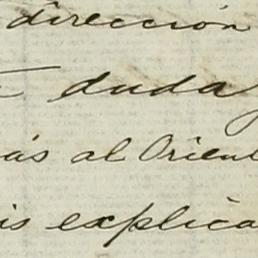 dirección
duda
ás al Orient
is explica